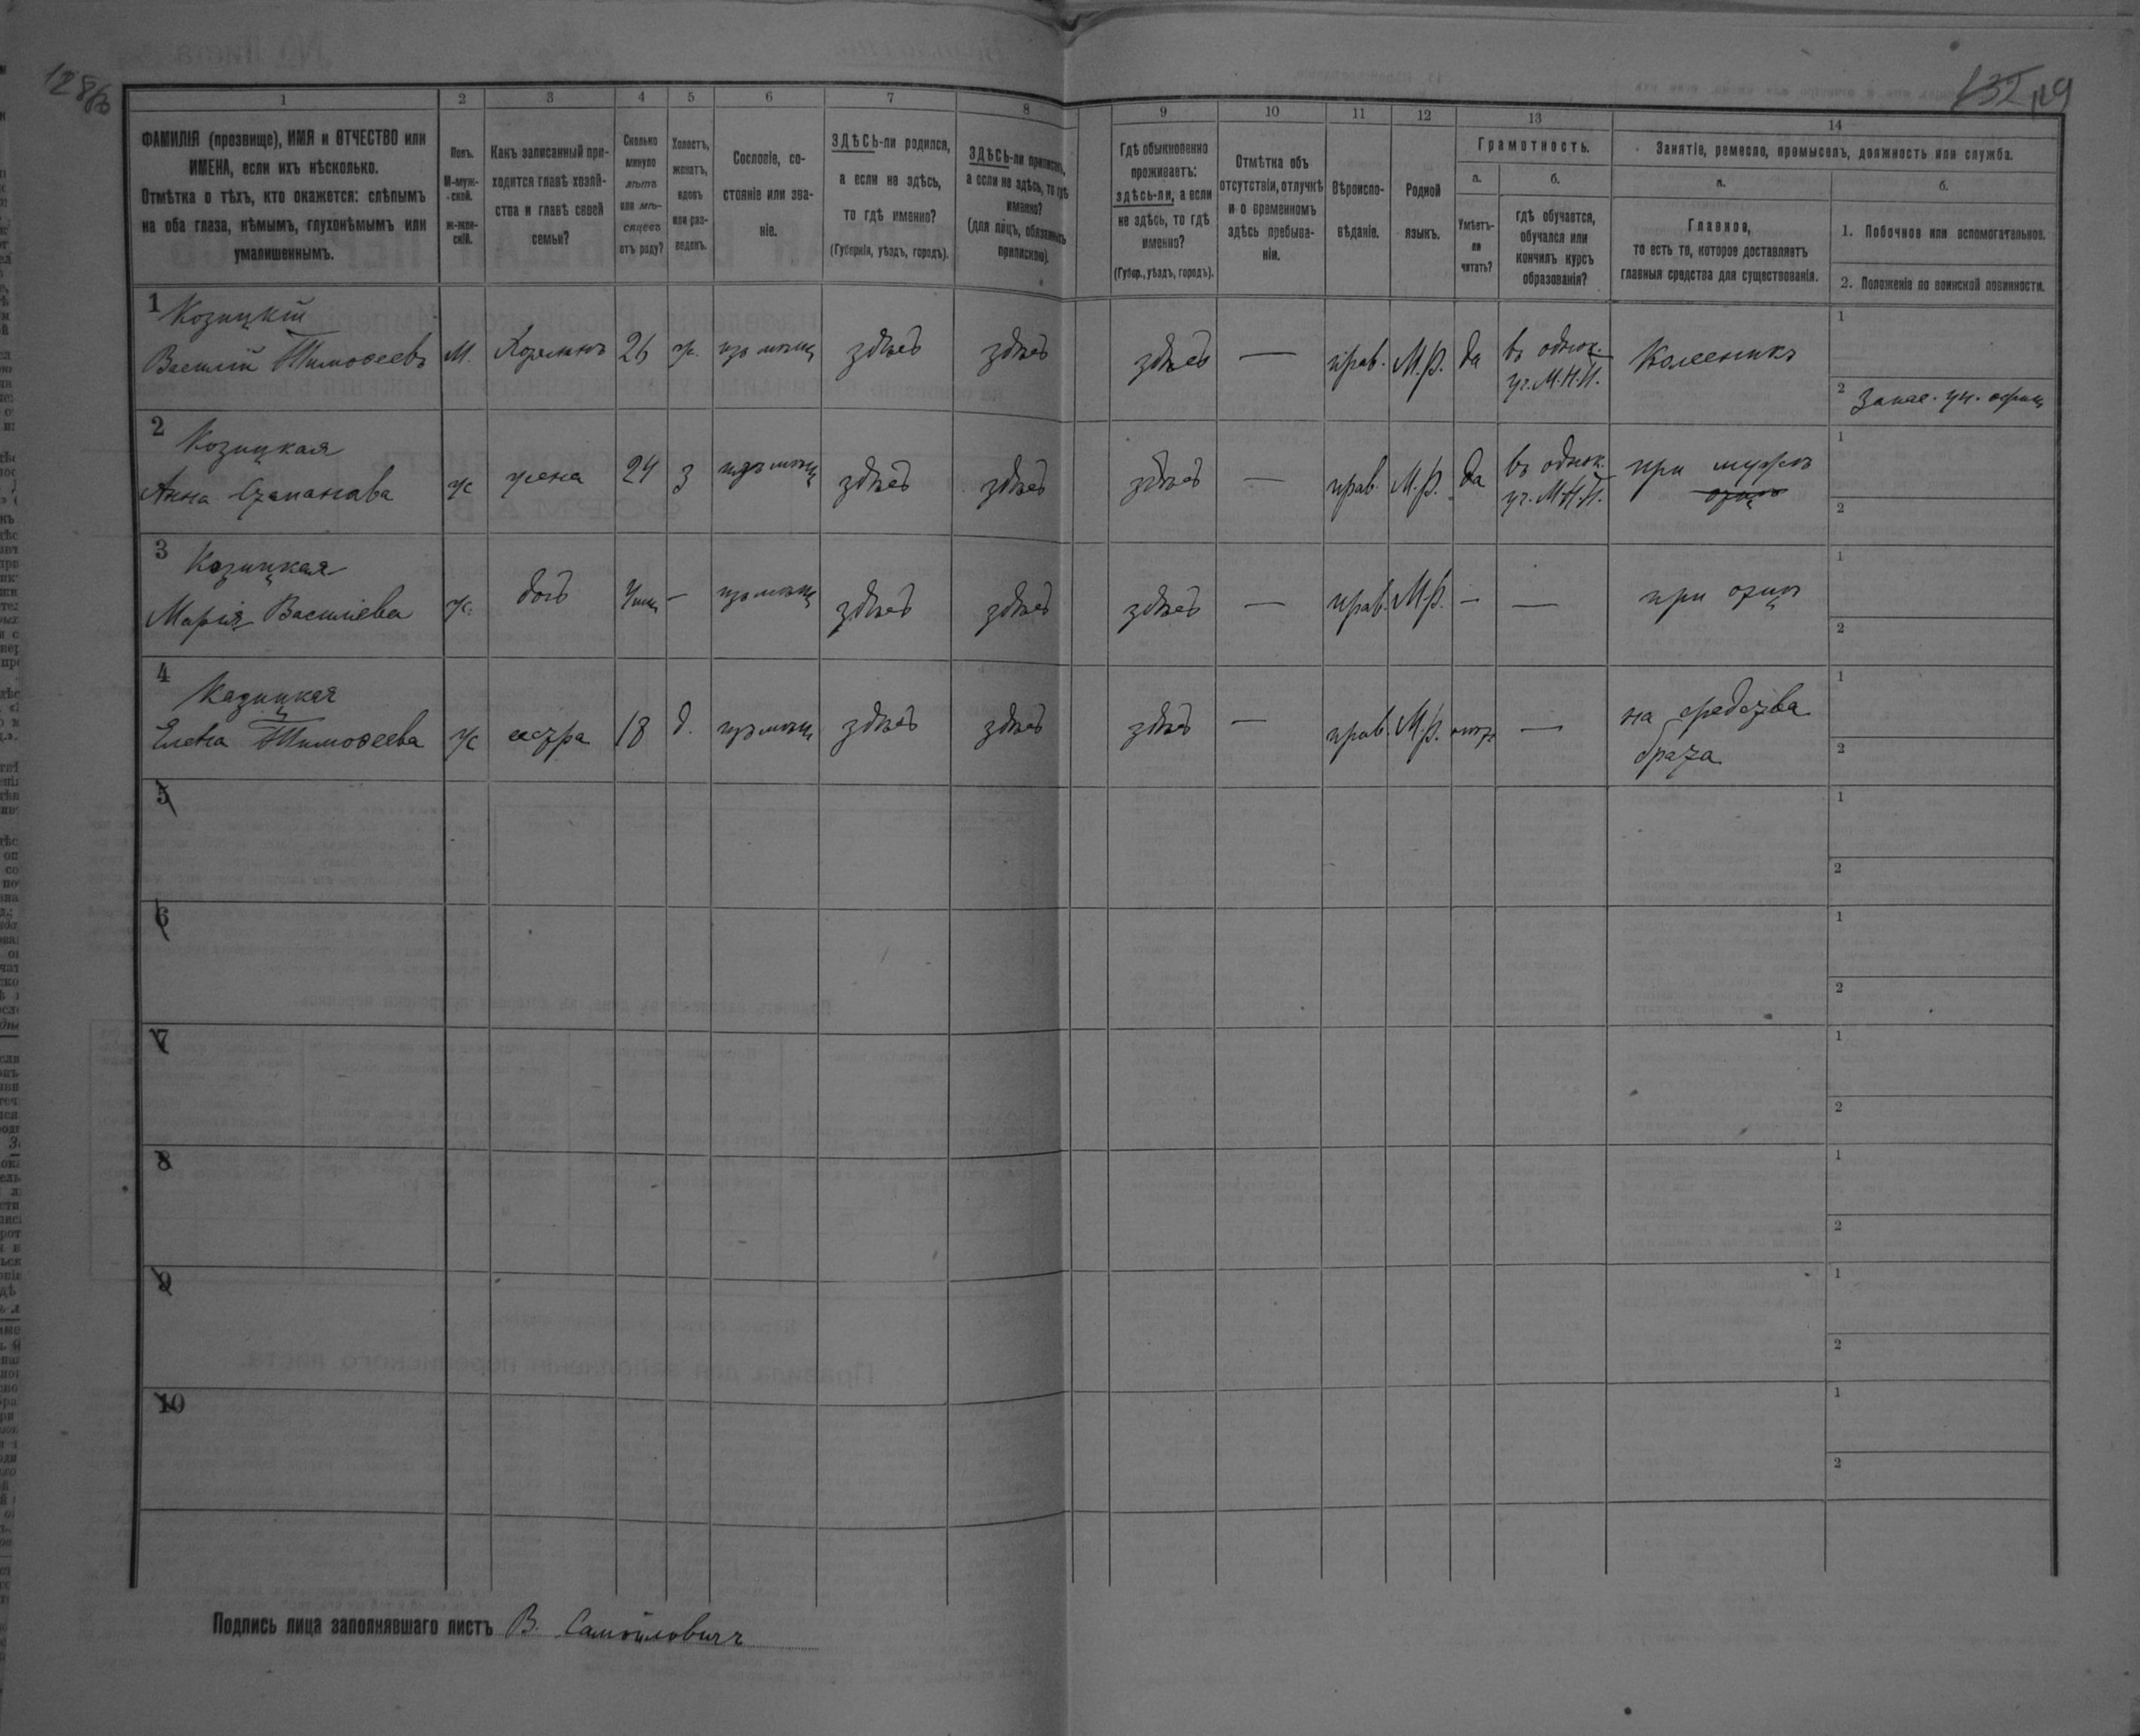 128об
132 119
1
2
3
4
5
6
7
8
9
10
11
12
13
14
ФАМИЛІЯ (прозвище), ИМЯ и ОТЧЕСТВО или
ИМЕНА, если ихъ нѣсколько.
Отмѣтка о тѣхъ, кто окажется: слѣпымъ
на оба глаза, нѣмымъ, глухонѣмымъ или
умалишеннымъ.
Полъ.
М-муж-
ской.
Ж-жен-
скій.
Какъ записанный при-
ходится главѣ хозяй-
ства и главѣ своей
семьи?
Сколько
минуло
лѣтъ
или мѣ-
сяцевъ
отъ роду?
Холостъ,
женатъ,
вдовъ
или раз-
веденъ.
Сословіе, со-
стояніе или зва-
ніе.
ЗДѢСЬ-ли родился,
а если не здѣсь,
то гдѣ именно?
(Губернія, уѣздъ, городъ).
ЗДѢСЬ-ли приписанъ,
а если не здѣсь, то гдѣ
именно?
(для лицъ, обязанныхъ
припискою).
Гдѣ обыкновенно
проживаетъ:
здѣсь-ли, а если
не здѣсь, то гдѣ
именно?
(Губер., уѣздъ, городъ).
Отмѣтка объ
отсутствіи, отлучкѣ
и о временномъ
здѣсь пребыва-
ніи.
Вѣроиспо-
вѣданіе.
Родной
языкъ.
Грамотность.
а.
Умѣетъ-
ли
читать?
б.
гдѣ обучается,
обучался или
кончилъ курсъ
образованія?
Занятіе, ремесло, промыселъ, должность или служба.
а.
Главное,
то есть то, которое доставляетъ
главныя средства для существованія.
б.
1. Побочное или вспомогательное.
2. Положеніе по воинской повинности.
1 Козицкій
Василій Тимоѳеевъ М. Хозяинъ 26 ж. изъ мѣщ здѣсь здѣсь здѣсь — прав. М.р. да въ однок. Колесникъ
уч. М.Н.П.
1
2 Запас. ун. офиц
2 Козицкая
Анна Степанова ж жена 24 з изъ мѣщ здѣсь здѣсь здѣсь — прав. М.р. да въ однок. при мужѣ
уч. М.Н.П. отцѣ
1
2
3 Козицкая
Марія Василіева ж. дочь — изъ мѣщ здѣсь здѣсь здѣсь — прав. М.р. — — при отцѣ
1
2
4 Козицкая
Елена Тимоѳеева ж сестра 18 д. изъ мѣщ здѣсь здѣсь здѣсь — прав. М.р. — на средства
брата
1
2
5
1
2
6
1
2
7
1
2
8
1
2
9
1
2
10
1
2
Подпись лица заполнявшаго листъ В. Самойловичъ